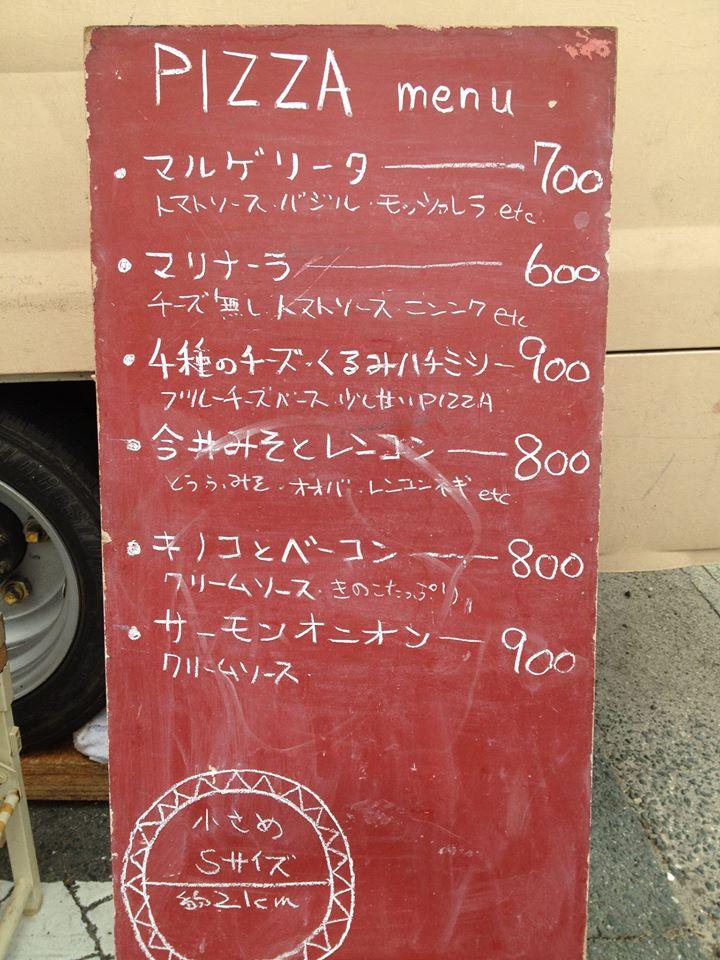 PIZZA menu.
・マルゲリータ ― 700
トマトソース・バジル・モッツァレラ etc
・マリナーラ ― 600
チーズ無し・トマトソース・ニンニク etc
・4種のチーズ・くるみハチミツ ― 900
ブルーチーズベース・少し甘いPIZZA
・今井みそとレンコン ― 800
とうふ・みそ・オオバ・レンコンネギ etc
・キノコとベーコン ― 800
クリームソース・きのこたっぷり
・サーモンオニオン ― 900
クリームソース・
小さめ
Sサイズ
約21cm